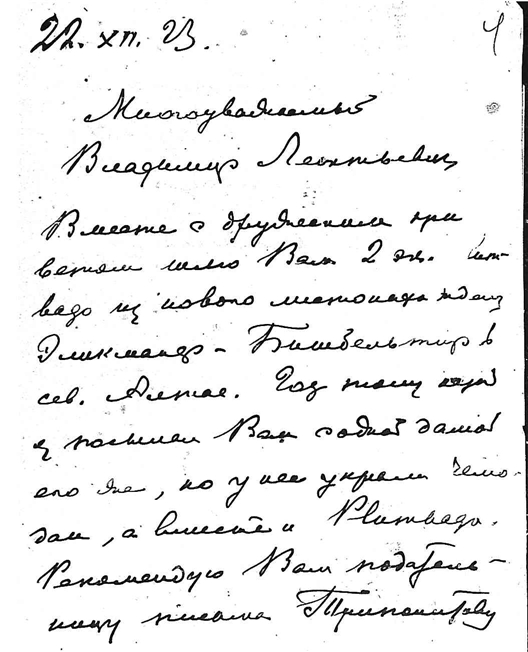 22. XII. 23.
Многоуважаемый
Владимир Леонтьевич
Вместе с дружеским при
ветом шлю Вам 2 экз.
из нового местонахожденья
Эликманар - Бишбельтир в
сев. Алтае. Год тому назад
я посылал Вам с одной дамой
его же, но у нее украли чемо-
дан, а вместе и
Рекомендую Вам податель-
ницу письма